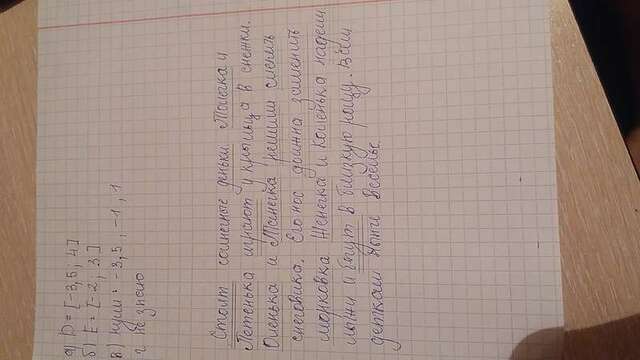 а) D = [-3,5; 4]
б) E = [-2, 3]
в.) нули: -3,5, -1, 1
г не знаю
Стоят солнечные деньки. Толечка и
Петенька играют у крыльца в снежки.
Оленька и Танечка решили слепить
снеговика. Его нос должна заменить
морковка Женечка и Коленька надели
лыжи и бегут в близкую рощу. Всем
деткам нынче веселье.